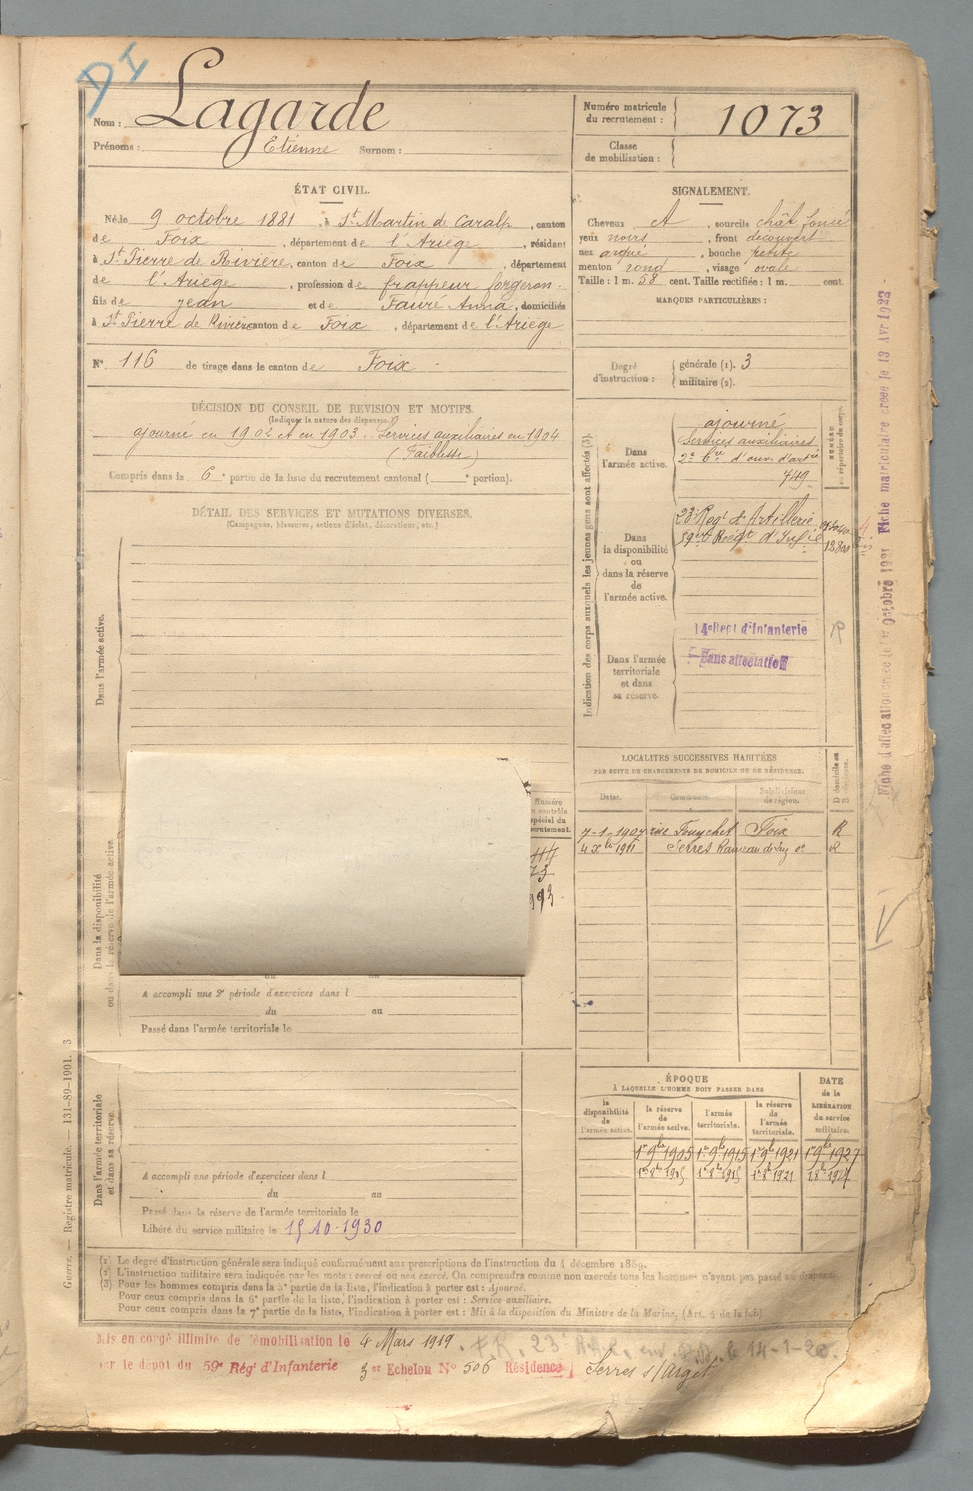 DI
Nom : Lagarde
Prénoms : Etienne Surnom :
Numéro matricule du recrutement : 1073
Classe de mobilisation :
ÉTAT CIVIL.
Né le 9 octobre 1881, à St Martin de Caralp, canton
de Foix, département de l'Ariège, résidant
à St Pierre de Rivière, canton de Foix, département
de l'Ariège, profession de frappeur forgeron
fils de jean et de Fauré Anna, domiciliés
à St Pierre de Rivière canton de Foix, département de l'Ariège
N° 116 de tirage dans le canton de Foix
SIGNALEMENT.
Cheveux et, sourcils chât foncé
yeux noirs, front découvert
nez arqué, bouche petite
menton rond, visage ovale
Taille : 1 m. 58 cent. Taille rectifiée : 1 m. cent.
MARQUES PARTICULIÈRES :
Degré d'instruction : générale (1). 3
militaire (2).
DÉCISION DU CONSEIL DE REVISION ET MOTIFS.
(Indiquer la nature des dispenses.)
ajourné en 1902 et en 1903. Services auxiliaires en 1904
(Faiblesse)
Compris dans la 6e partie de la liste du recrutement cantonal ( e portion).
DÉTAIL DES SERVICES ET MUTATIONS DIVERSES.
(Campagnes, blessures, actions d'éclat, décorations, etc.)
Dans l'armée active.
Indication des corps auxquels les jeunes gens sont affectés (3).
NUMÉRO au répertoire du corps.
Dans l'armée active.
ajourné
Services auxiliaires
2e d'ouv. d'artie
749
Dans la disponibilité ou dans la réserve de l'armée active.
23e Regt d'Artillerie
59e Regt d'Infie
Dans l'armée territoriale et dans sa réserve.
14e Regt d'Infanterie
Sans affectation
Fiche matriculaire créée le 13 Avr 1922
LOCALITÉS SUCCESSIVES HABITÉES
PAR SUITE DE CHANGEMENTS DE DOMICILE OU DE RÉSIDENCE.
Dates. Communes. Subdivisions de région. D domicile ou R résidence.
7-1-1907 rue Foix R
1911 Serres R
Dans la disponibilité ou dans la réserve de l'armée active.
Numéro au contrôle spécial du recrutement.
A accompli une 2e période d'exercices dans l
du au
Passé dans l'armée territoriale le
Dans l'armée territoriale et dans sa réserve.
A accompli une période d'exercices dans l
du au
Passé dans la réserve de l'armée territoriale le
Libéré du service militaire le 15-10-1930
ÉPOQUE
À LAQUELLE L'HOMME DOIT PASSER DANS
la disponibilité de l'armée active.
la réserve de l'armée active.
l'armée territoriale.
la réserve de l'armée territoriale.
DATE de la LIBÉRATION du service militaire.
1er 9bre 1905 1er 9bre 1915 1er 9bre 1921 1er 9bre 1927
Guerre. — Registre matricule. — 131-89-1901. 3
(1) Le degré d'instruction générale sera indiqué conformément aux prescriptions de l'instruction du 4 décembre 1889.
(2) L'instruction militaire sera indiquée par les mots : exercé ou non exercé. On comprendra comme non exercés tous les hommes n'ayant pas passé au drapeau.
(3) Pour les hommes compris dans la 5e partie de la liste, l'indication à porter est : Ajourné.
Pour ceux compris dans la 6e partie de la liste, l'indication à porter est : Service auxiliaire.
Pour ceux compris dans la 7e partie de la liste, l'indication à porter est : Mis à la disposition du Ministre de la Marine. (Art. 4 de la loi)
Mis en congé illimité de démobilisation le 4 Mars 1919. le 14-1-20.
sur le dépôt du 59e Rég' d'Infanterie 3er Echelon N° 506 Résidence Serres s/Arget